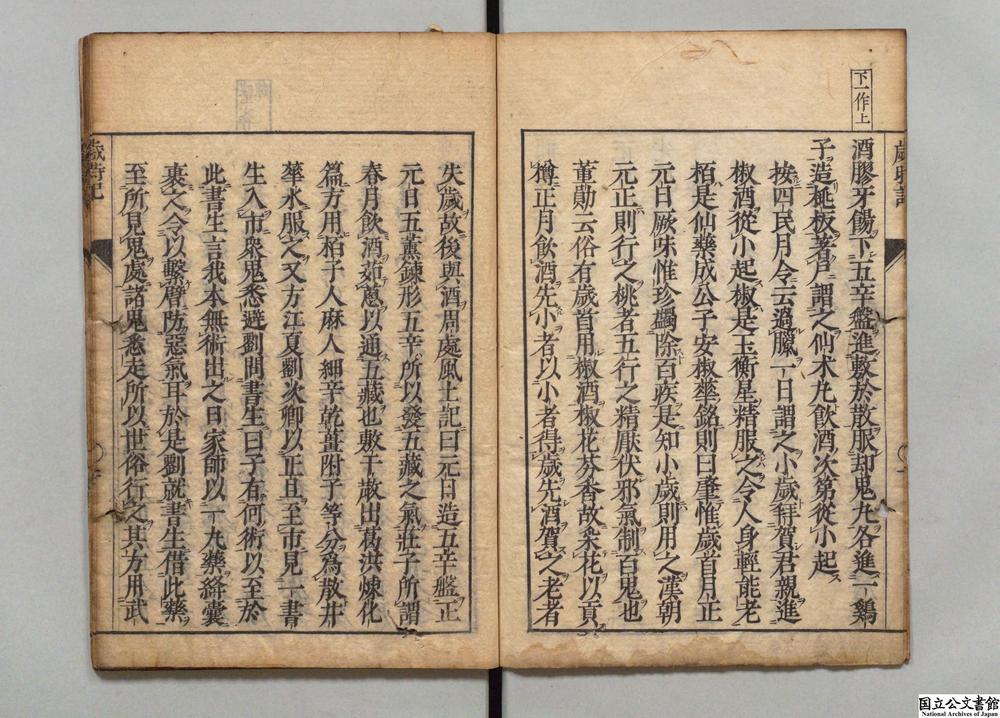 下一作上
歲時記
酒膠牙餳下五辛盤進敷於散服却鬼丸各進一鷄
子造桃板著戶謂之仙木凡飲酒次第從小起
按四民月令云過臘一日謂之小歲拜賀君親進
椒酒從小起椒是玉衡星精服之令人身輕能老
栢是仙藥成公子安椒華銘則曰肇惟歲首月正
元日厥味惟珍蠲除百疾是知小歲則用之漢朝
元正則行之桃者五行之精厭伏邪氣制百鬼也
董勛云俗有歲首用椒酒椒花芬香故采花以貢
樽正月飲酒先小者以小者得歲先酒賀之老者
失歲故後與酒周處風土記曰元日造五辛盤正
元日五薰鍊形五辛所以發五藏之氣莊子所謂
春月飲酒茹蔥以通五藏也敷于散出葛洪煉化
篇方用柏子人麻人細辛乾薑附子等分為散井
華水服之又方江夏劉次卿以正旦至市見一書
生入市衆鬼悉避劉問書生曰子有何術以至於
此書生言我本無術出之日家師以一丸藥絳囊
裹之令以繫臂防惡氣耳於是劉就書生借此藥
至所見鬼處諸鬼悉走所以世俗行之其方用武
歲時記
国立公文書館
National Archives of Japan